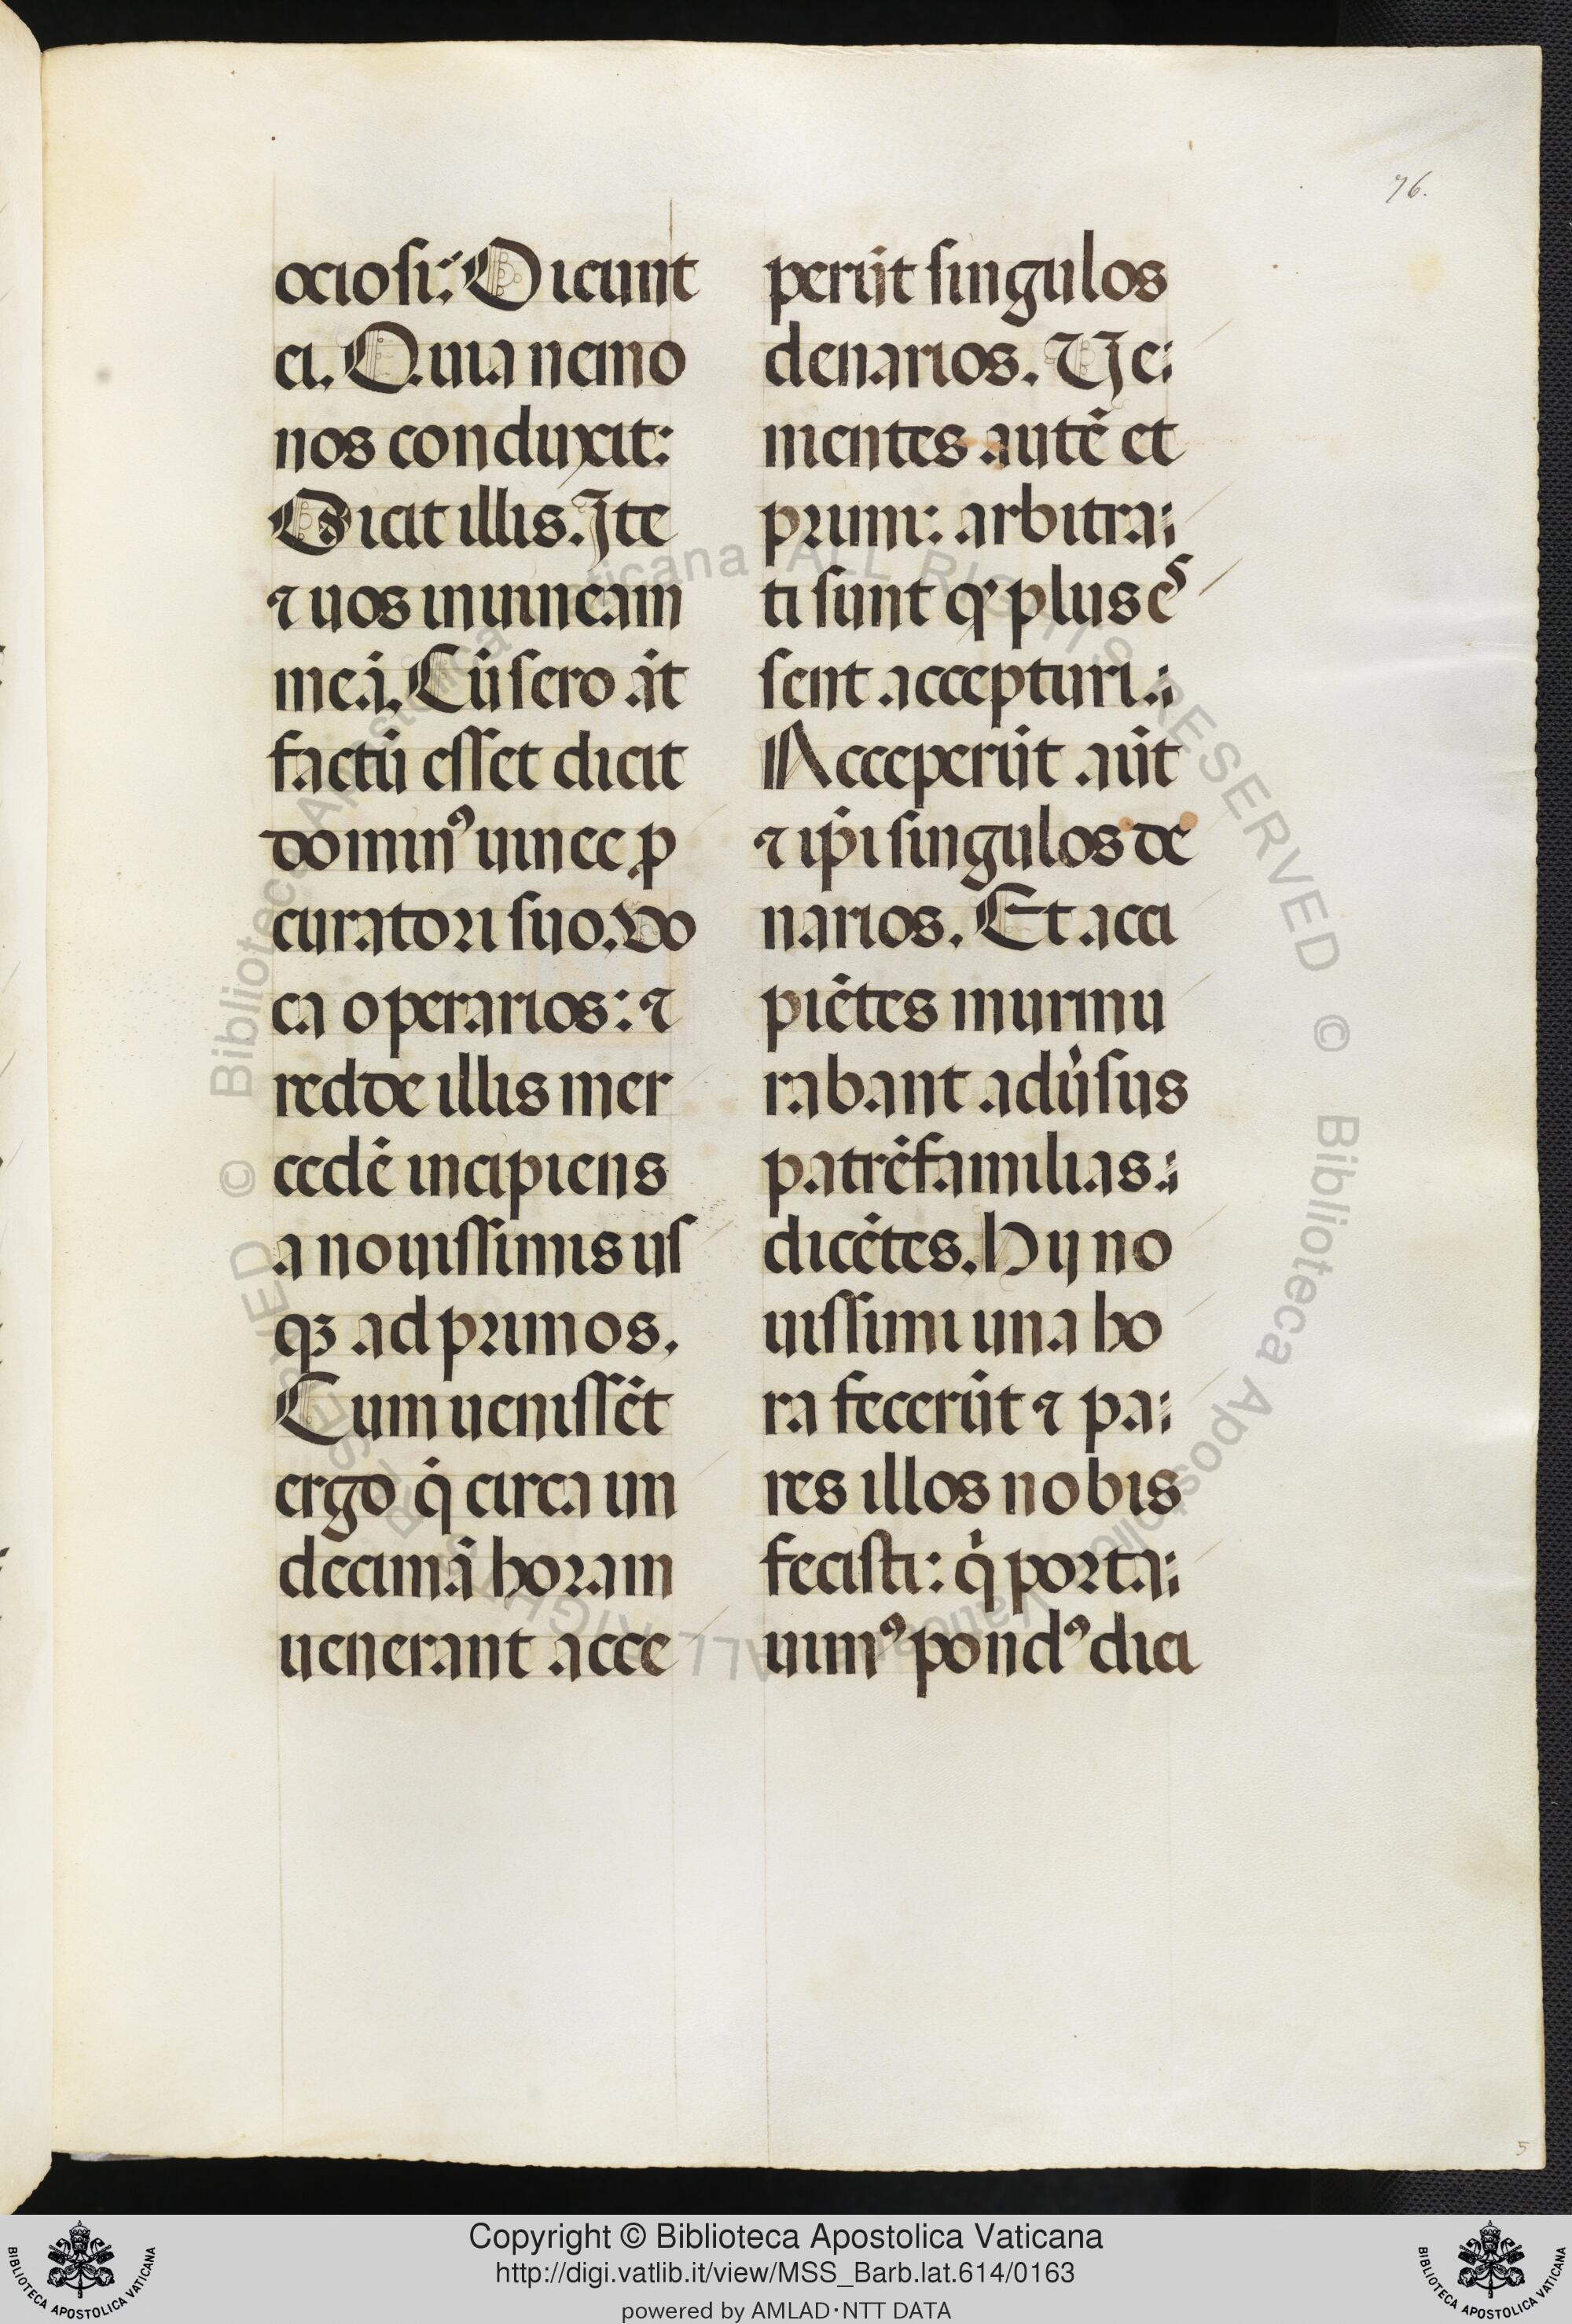 76.
ociosi:̃ Dicunt
ei. Quia nemo
nos conduxit:
Dicit illis. Ite
⁊ uos in uineam
meā. Cū sero āt
factū esset dicit
dominꝰ uinee ꝓ
curatori suo. Vo
ca operarios: ⁊
redde illis mer
cedē incipiens
a nouissimis us
qꝫ ad primos.
Cum uenissēt
ergo q̇ circa un
decimā horam
uenerant acce
perūt singulos
denarios. Ve:
nientes autē et
primi: arbitra:
ti sunt qꝰ plus eˢ
sent accepturi.:
Acceperūt aūt
⁊ ip̄i singulos de
narios. Et acci
piētes murmu
rabant adu̇sus
patrēfamilias.:
dicētes. Hij no
uissimi una ho
ra fecerūt ⁊ pa:
res illos nobis
fecisti: q̇ porta:
uimꝰ pondꝰ diei
5
Copyright © Biblioteca Apostolica Vaticana
http://digi.vatlib.it/view/MSS_Barb.lat.614/0163
powered by AMLAD·NTT DATA
BIBLIOTECA APOSTOLICA VATICANA
BIBLIOTECA APOSTOLICA VATICANA